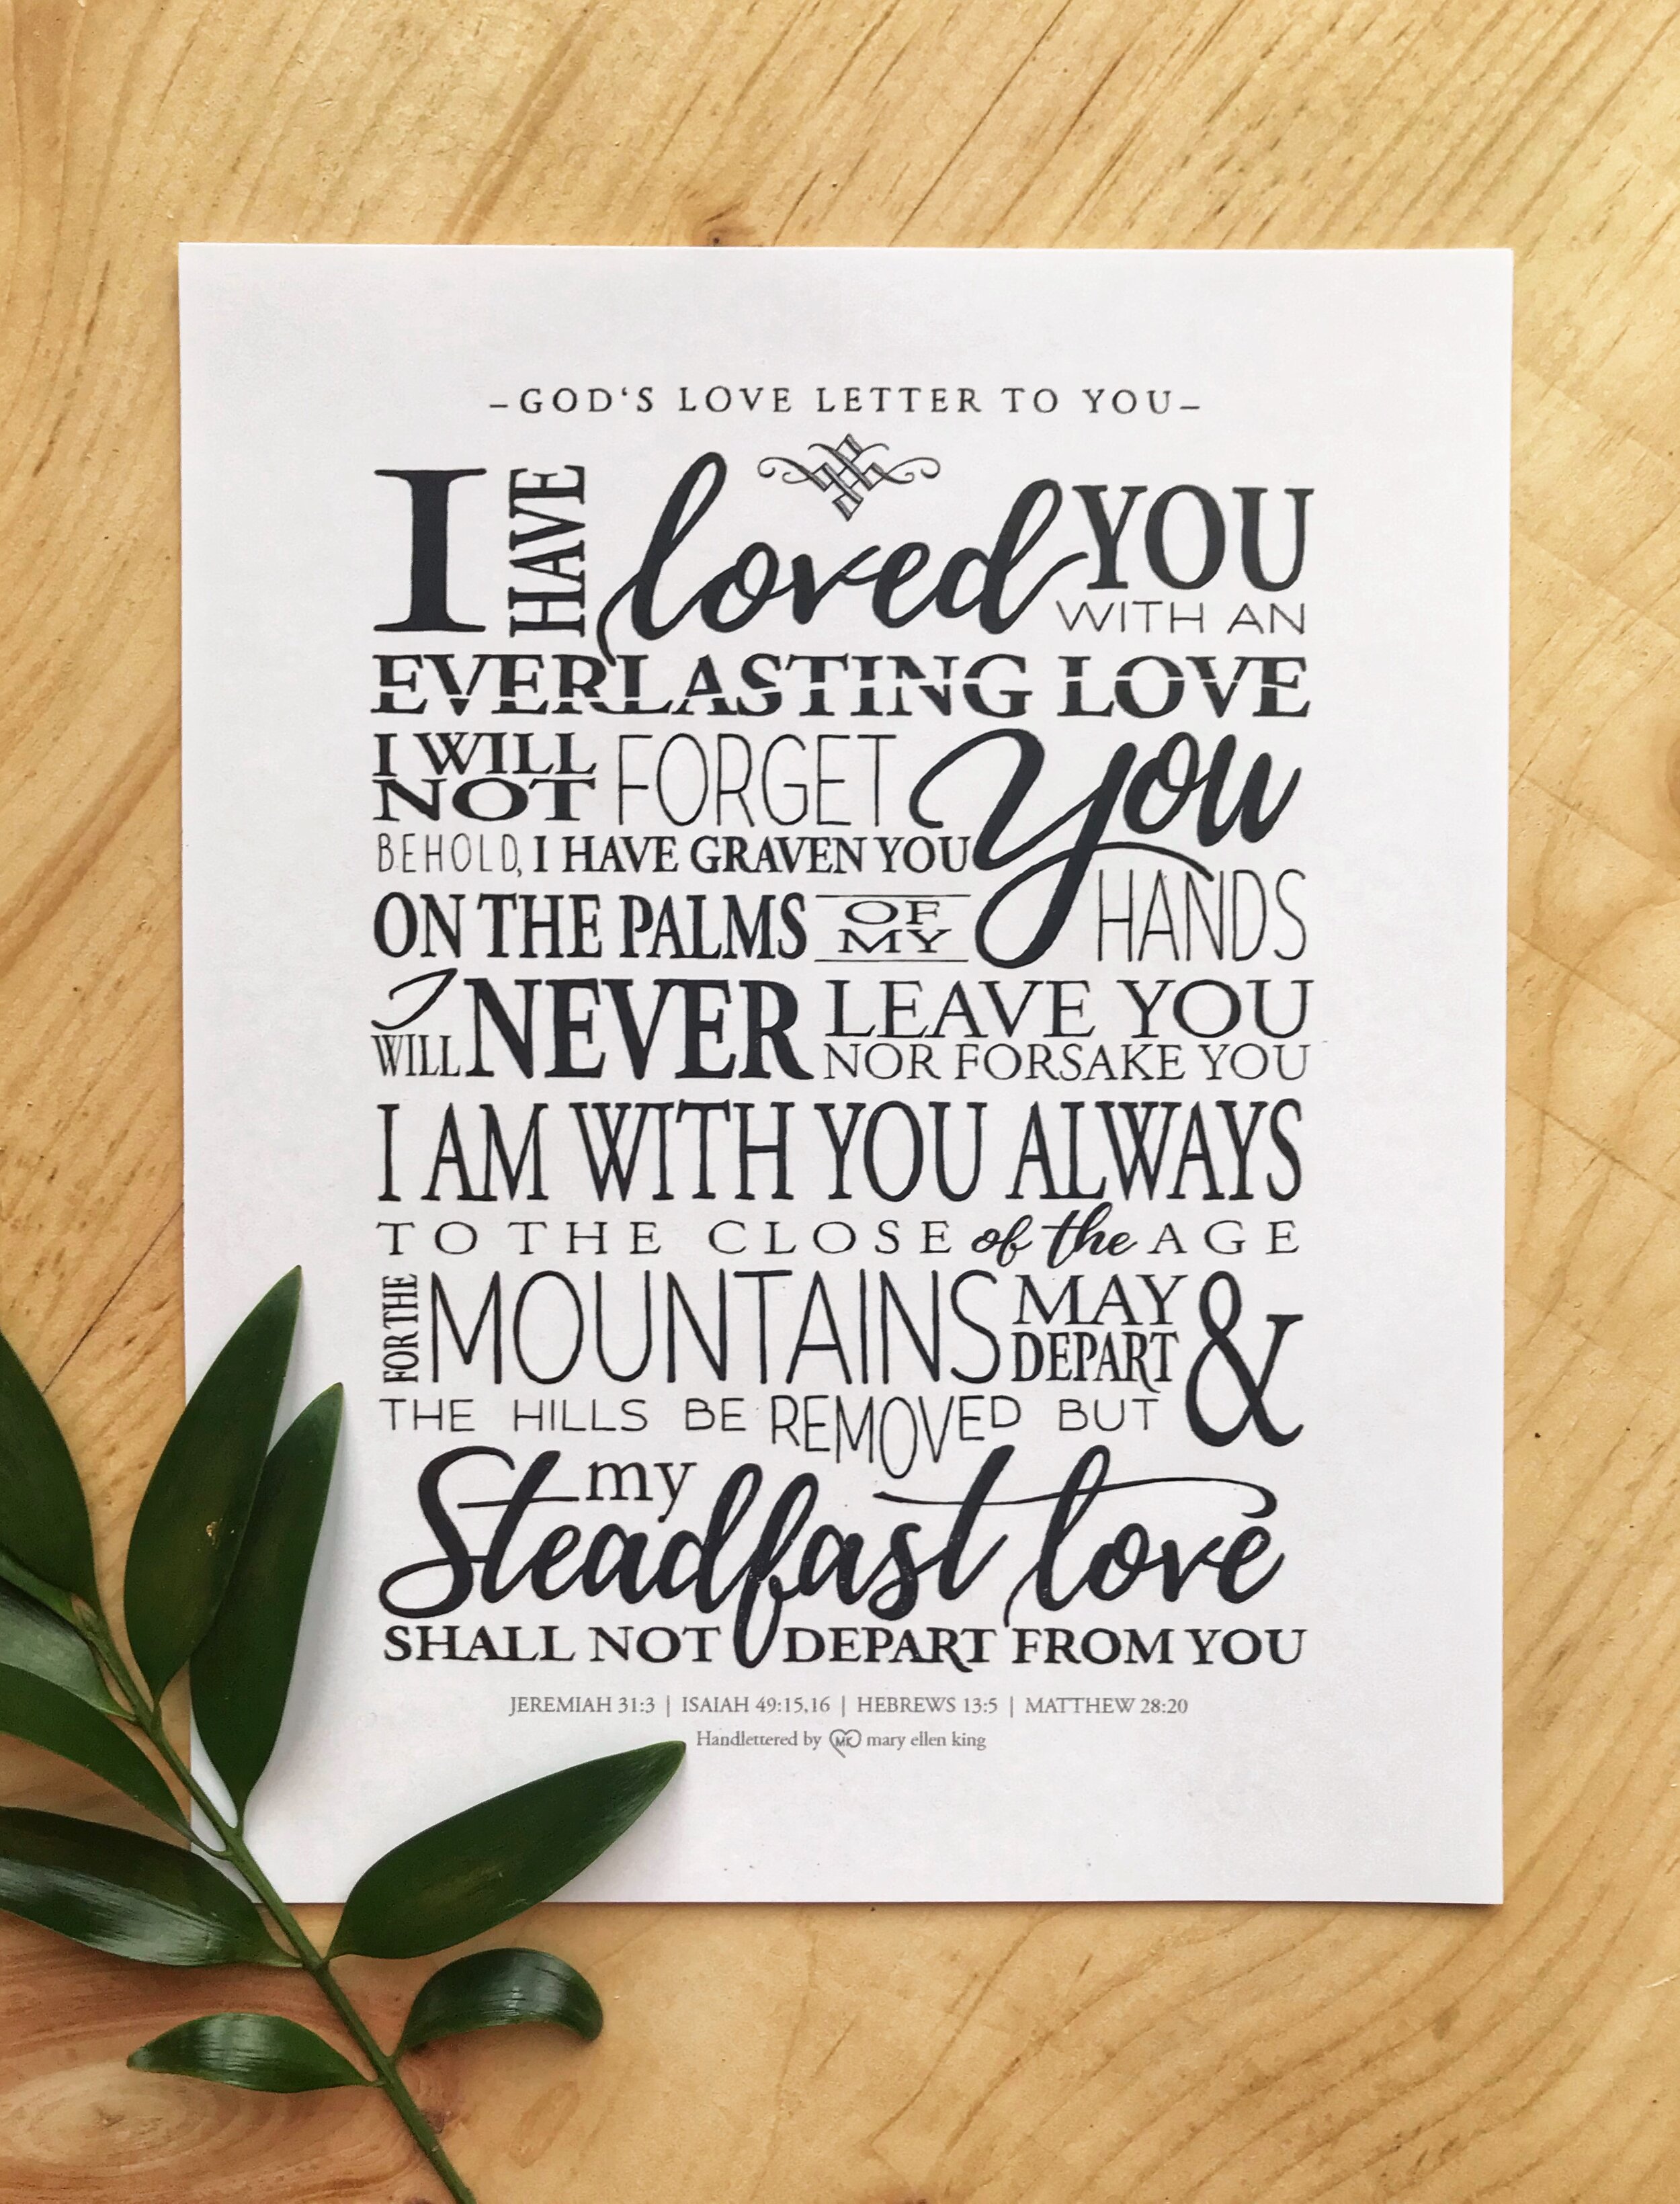 –GOD‘S LOVE LETTER TO YOU–
I HAVE loved YOU
WITH AN
EVERLASTING LOVE
I WILL NOT FORGET you
BEHOLD, I HAVE GRAVEN YOU
ON THE PALMS OF MY HANDS
I WILL NEVER LEAVE YOU
NOR FORSAKE YOU
I AM WITH YOU ALWAYS
TO THE CLOSE of the AGE
FOR THE MOUNTAINS MAY DEPART &
THE HILLS BE REMOVED BUT
my
Steadfast love
SHALL NOT DEPART FROM YOU
JEREMIAH 31:3 | ISAIAH 49:15,16 | HEBREWS 13:5 | MATTHEW 28:20
Handlettered by MK mary ellen king